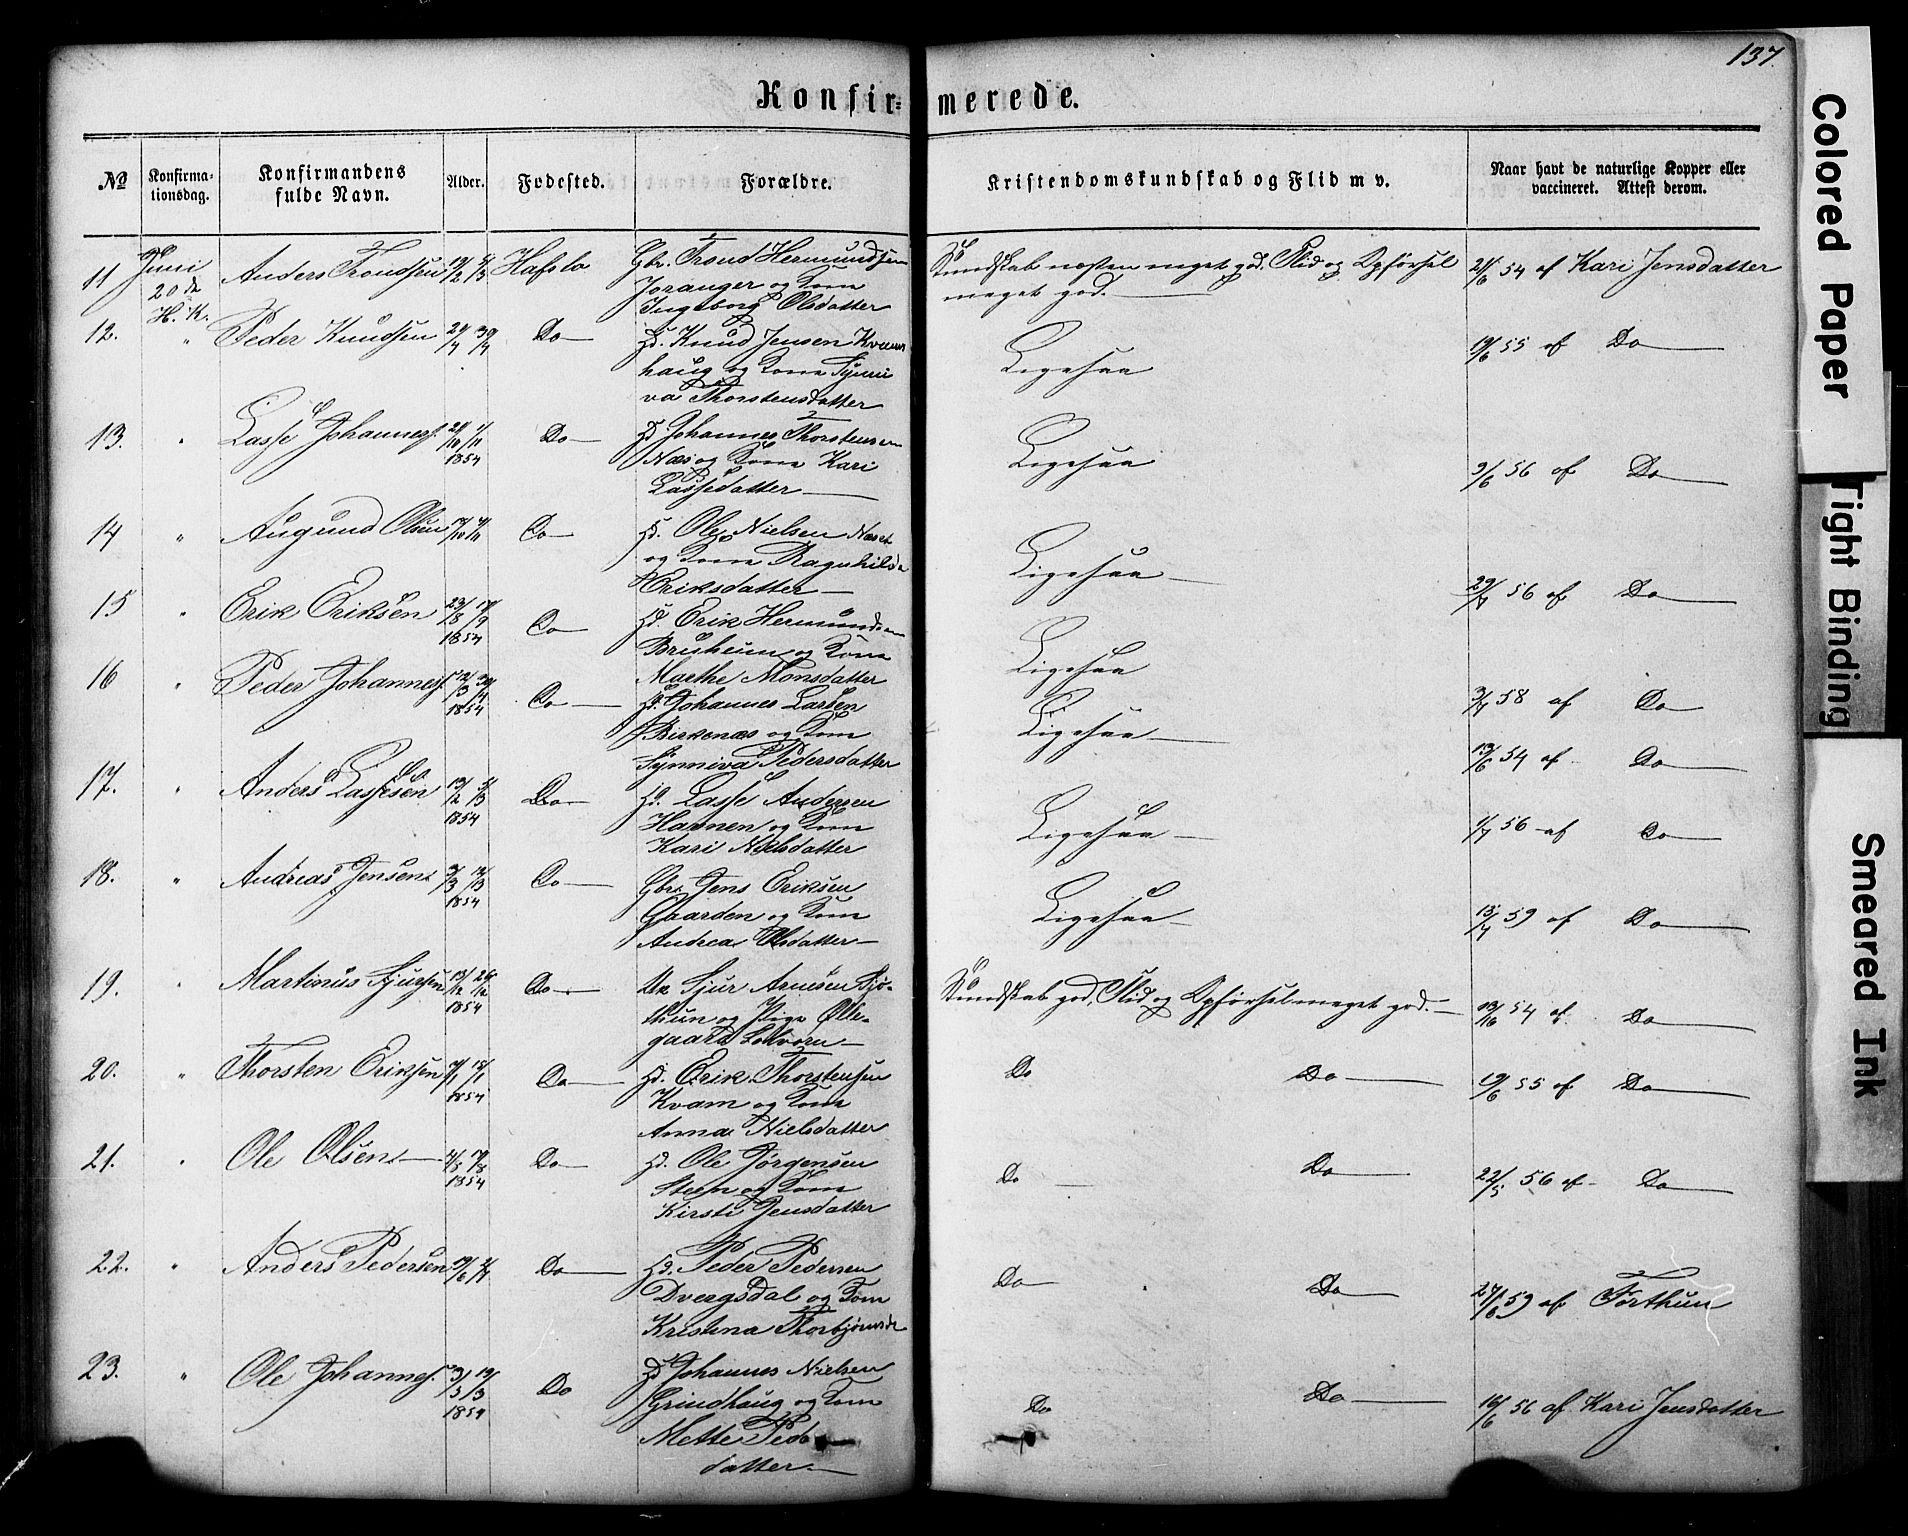 137.
Konfir=merede.
No Konfirmationsdag. Konfirmandens fulde Navn. Alder. Fødested. Forældre. Kristendomskundskab og Flid m v. Naar havt de naturlige Kopper eller vaccineret. Attest derom.
11 Juni 20de H. K. Anders Trondsen Hafslo Gbr. Trond Hermundsen
Joranger og Kone
Ingeborg Olsdatter
Kundskab næsten meget god. Flid og Opførsel
meget god.
21/6 54 af Kari Jensdatter
12. " Peder Knudsen Do Hd. Knud Jensen Kvams
haug og Kone Synni
va Thorstensdatter
Ligesaa 19/6 55 af Do
13. " Lasse Johannes. 1854 Do Hd Johannes Thorstensen
Næs og Kone Kari
Lassedatter
Ligesaa 9/6 56 af Do
14 " Augund Olsen Do Hd. Ole Nielsen Næset
og Kone Ragnhilda
Eriksdatter
Ligesaa 56 af Do
15 " Erik Eriksen 1854 Do Hd. Erik Hermundsen
Brusheim og Kone
Marthe Monsdatter
Ligesaa 58 af Do
16 " Peder Johannes. 1854 Do Hd. Johannes Larsen
Birkenæs og Kone
Synneva Pedersdatter
Ligesaa 13/6 54 af Do
17. " Anders Lassesen 13/2 5/3 1854 Do Hd. Lasse Andersen
Havnen og Kone
Kari Nielsdatter
Ligesaa 1/7 56 af Do
18. " Andreas Jensen 1854 Do Gbr. Jens Eriksen
Gaarden og Kone
Andrea Olsdatter
Ligesaa 59 af Do
19. " Martinus Sjursen 13/12 26/12 1854 Do Sjur Arnesen Sjø-
thun og Pige Olle-
gaard Solvorn
Kundskab god, Flid og Opførsel meget god. 54 af Do
20. " Thorsten Eriksen 1854 Do Hd. Erik Thorstensen
Kvam og Kone
Anna Nielsdatter
Do Do 19/6 55 af Do
21. " Ole Olsen 1854 Do Hd. Ole Jørgensen
Steen og Kone
Kirsti Jensdatter
Do Do 22/5 56 af Do
22. " Anders Pedersen Do Hd. Peder Pedersen
Dvergsdal og Kone
Kristina Thorbjørnsdr
Do Do 27/6 59 af Forthun
23. " Ole Johannes. 3/3 19/3 1854 Do Hd Johannes Nielsen
Grindhaug og Kone
Mette Peds
datter
Do Do 16/6 56 af Kari Jensdatter
Colored Paper
Tight Binding
Smeared Ink